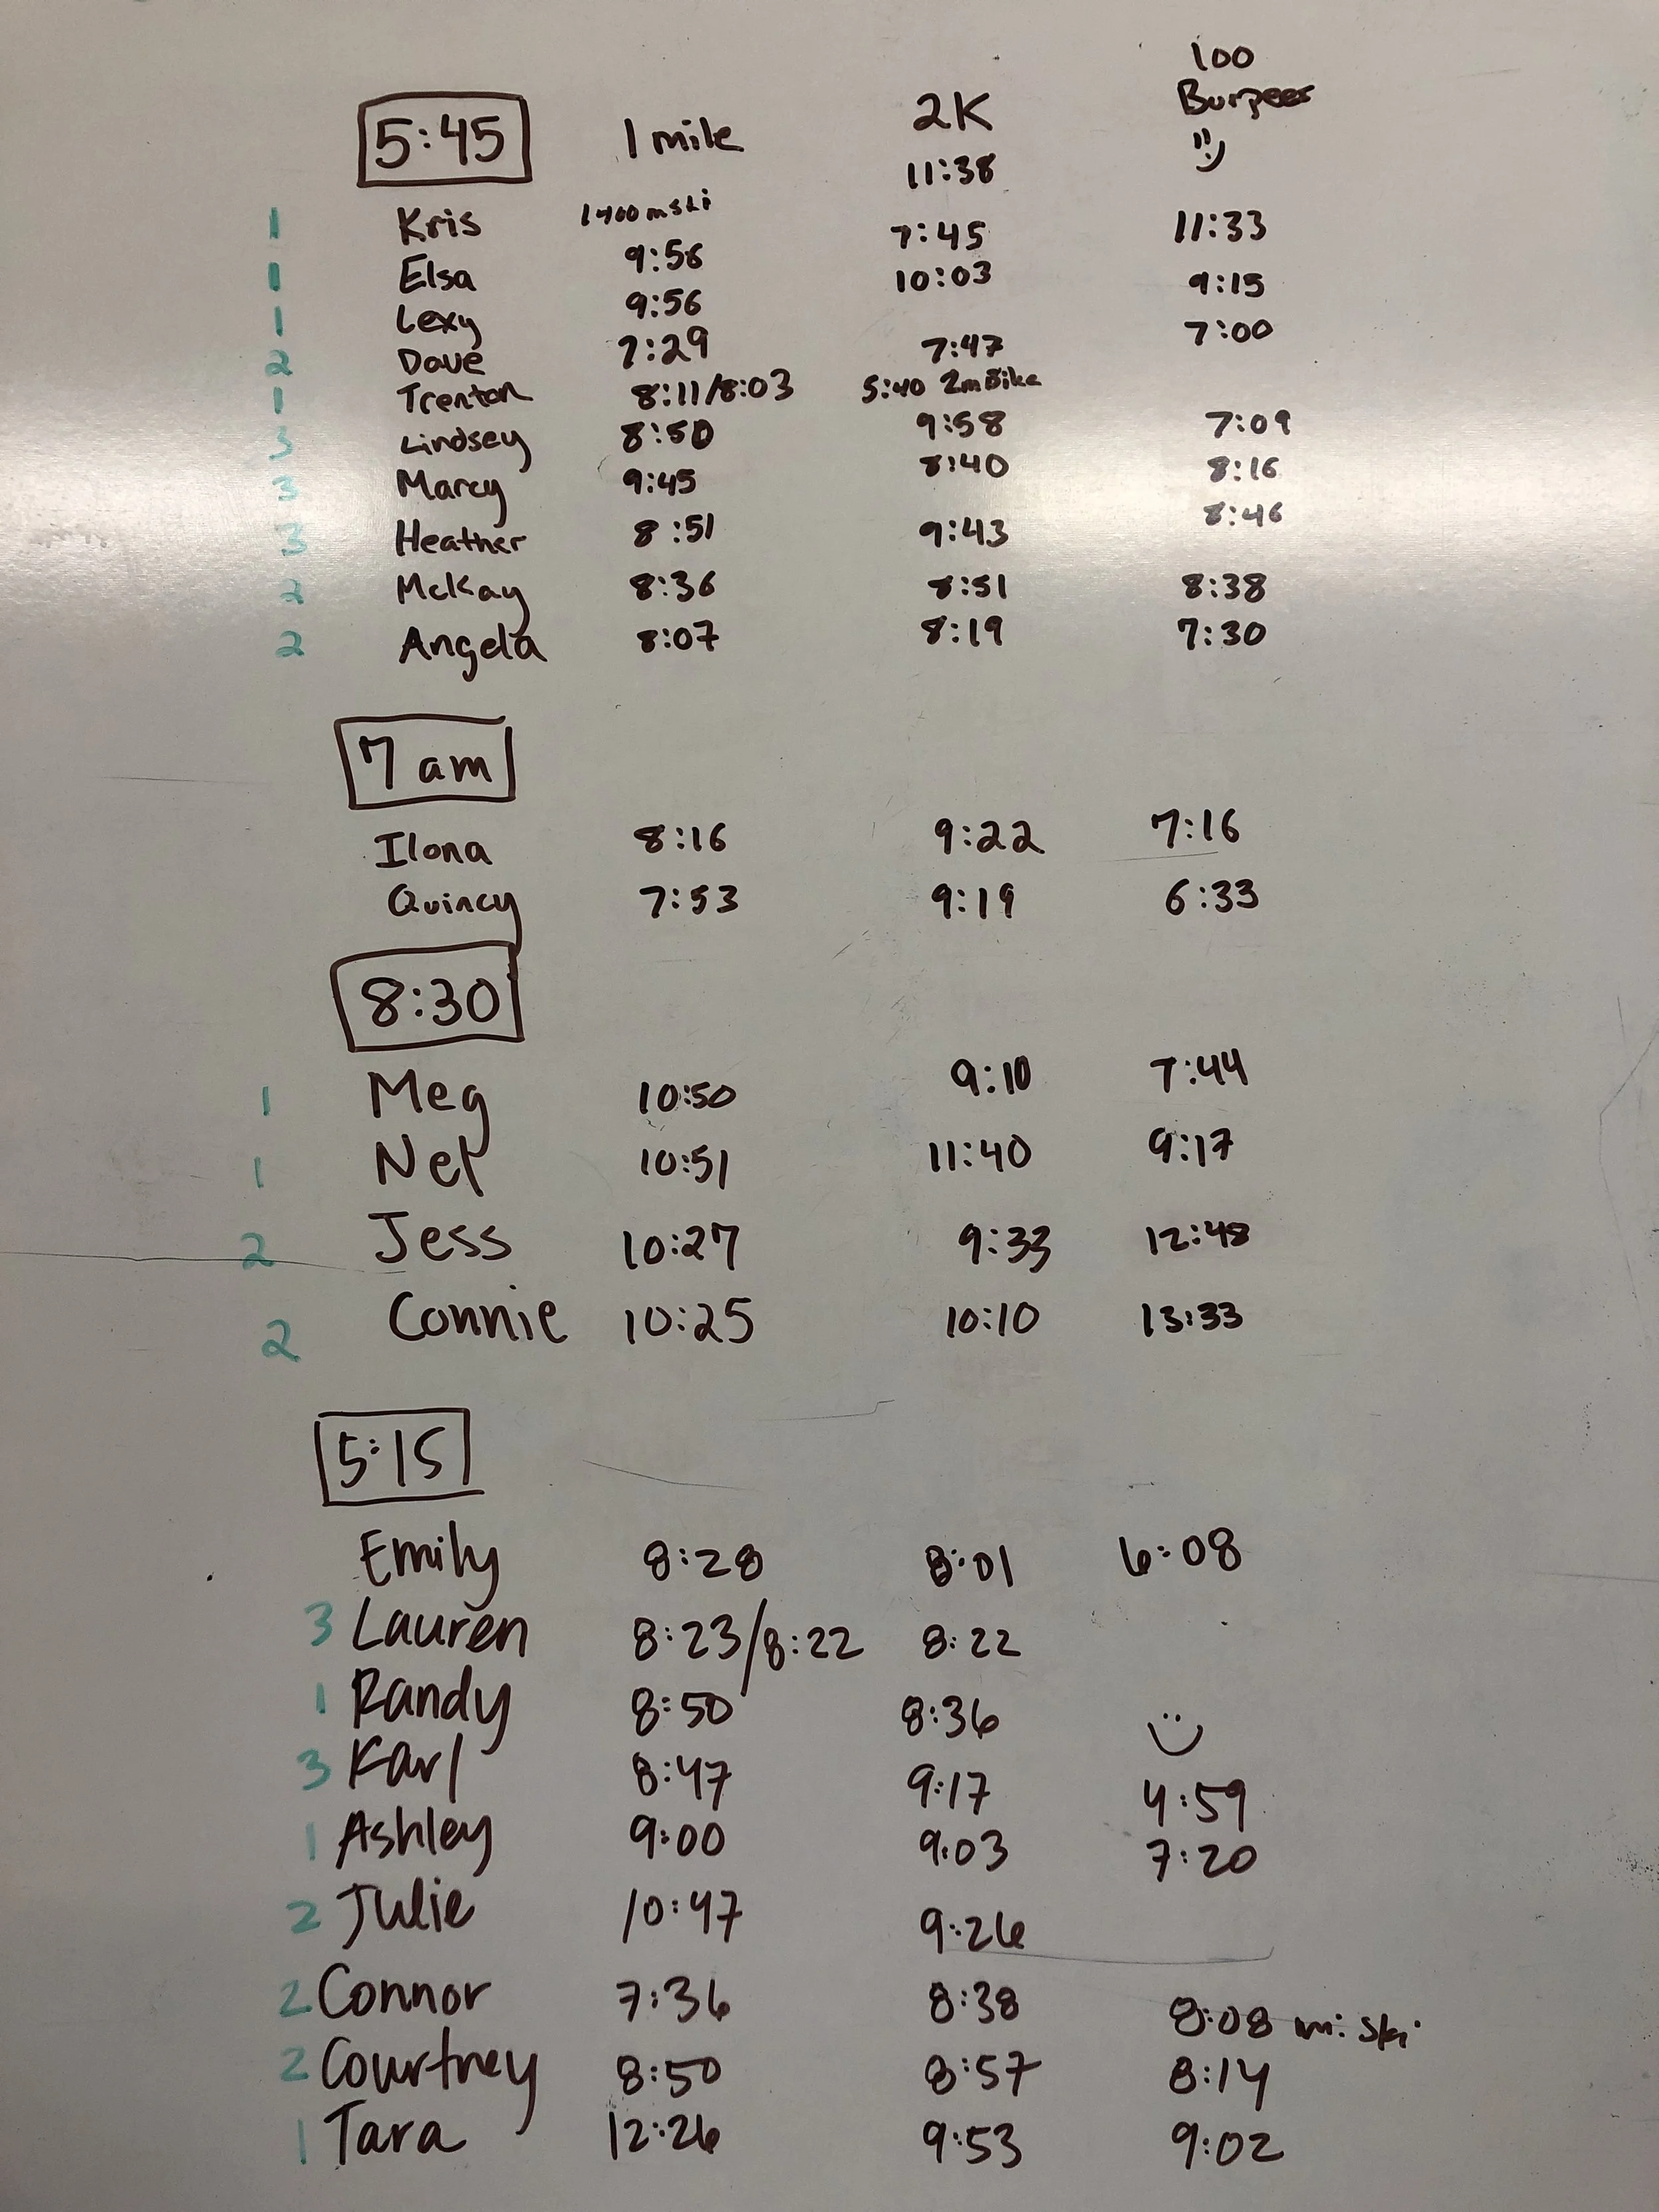 100
5:45 1 mile 2K Burpees
11:38
1 Kris 1400m ski 7:45 11:33
1 Elsa 9:56 10:03 9:15
1 Lexy 9:56 7:00
2 Dave 7:29 7:47
1 Trenton 8:11/8:03 5:40 2m Bike
3 Lindsey 8:50 9:58 7:09
3 Marcy 9:45 8:40 8:16
3 Heather 8:51 9:43 8:46
2 McKay 8:36 8:51 8:38
2 Angela 8:07 8:19 7:30
7 am
Ilona 8:16 9:22 7:16
Quincy 7:53 9:19 6:33
8:30
1 Meg 10:50 9:10 7:44
1 Nel 10:51 11:40 9:17
2 Jess 10:27 9:33 12:48
2 Connie 10:25 10:10 13:33
5:15
Emily 8:28 8:01 6:08
3 Lauren 8:23/8:22 8:22
1 Randy 8:50 8:36
3 Karl 8:47 9:17 4:59
1 Ashley 9:00 9:03 7:20
2 Julie 10:47 9:26
2 Connor 7:36 8:38 8:08 mi ski
2 Courtney 8:50 8:57 8:14
1 Tara 12:26 9:53 9:02